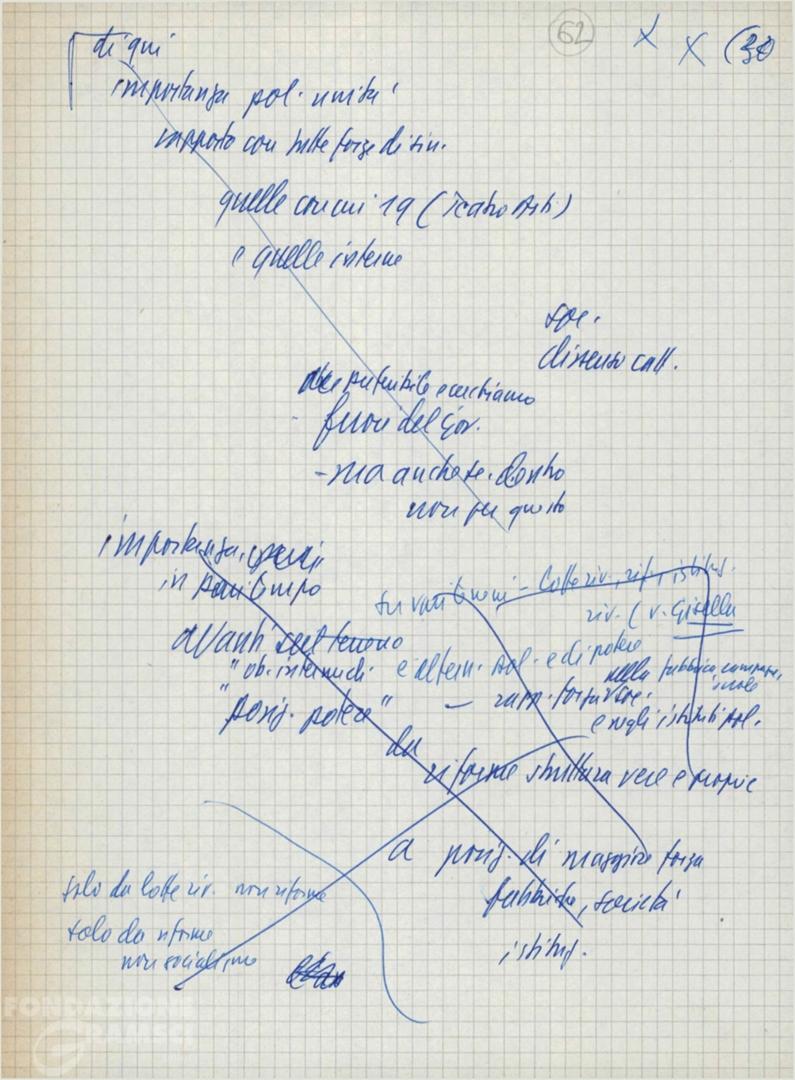 62
X X (30
di qui
importanza pol. unità
rapporto con tutte forze di sin.
quelle con cui
e quelle esterne
soc.
dissenso catt.
fuori del gov.
- ma anche se dentro
non per questo
importanza
in pari tempo
su vari terreni - lotte riv., rif., istituz.
riv. (v. Gisella
avanti sul terreno
"ob. intermedi e altern. pol. e di potere
nella fabbrica, campagne,
scuole
"posiz. potere" - rapp. forza soc.
e negli istituti pol.
da
riforme struttura vere e proprie
a posiz. di maggiore forza
fabbriche, società
istituz.
solo da lotte riv. non riforme
solo da riforme
non socialismo
FONDAZIONE
GRAMSCI